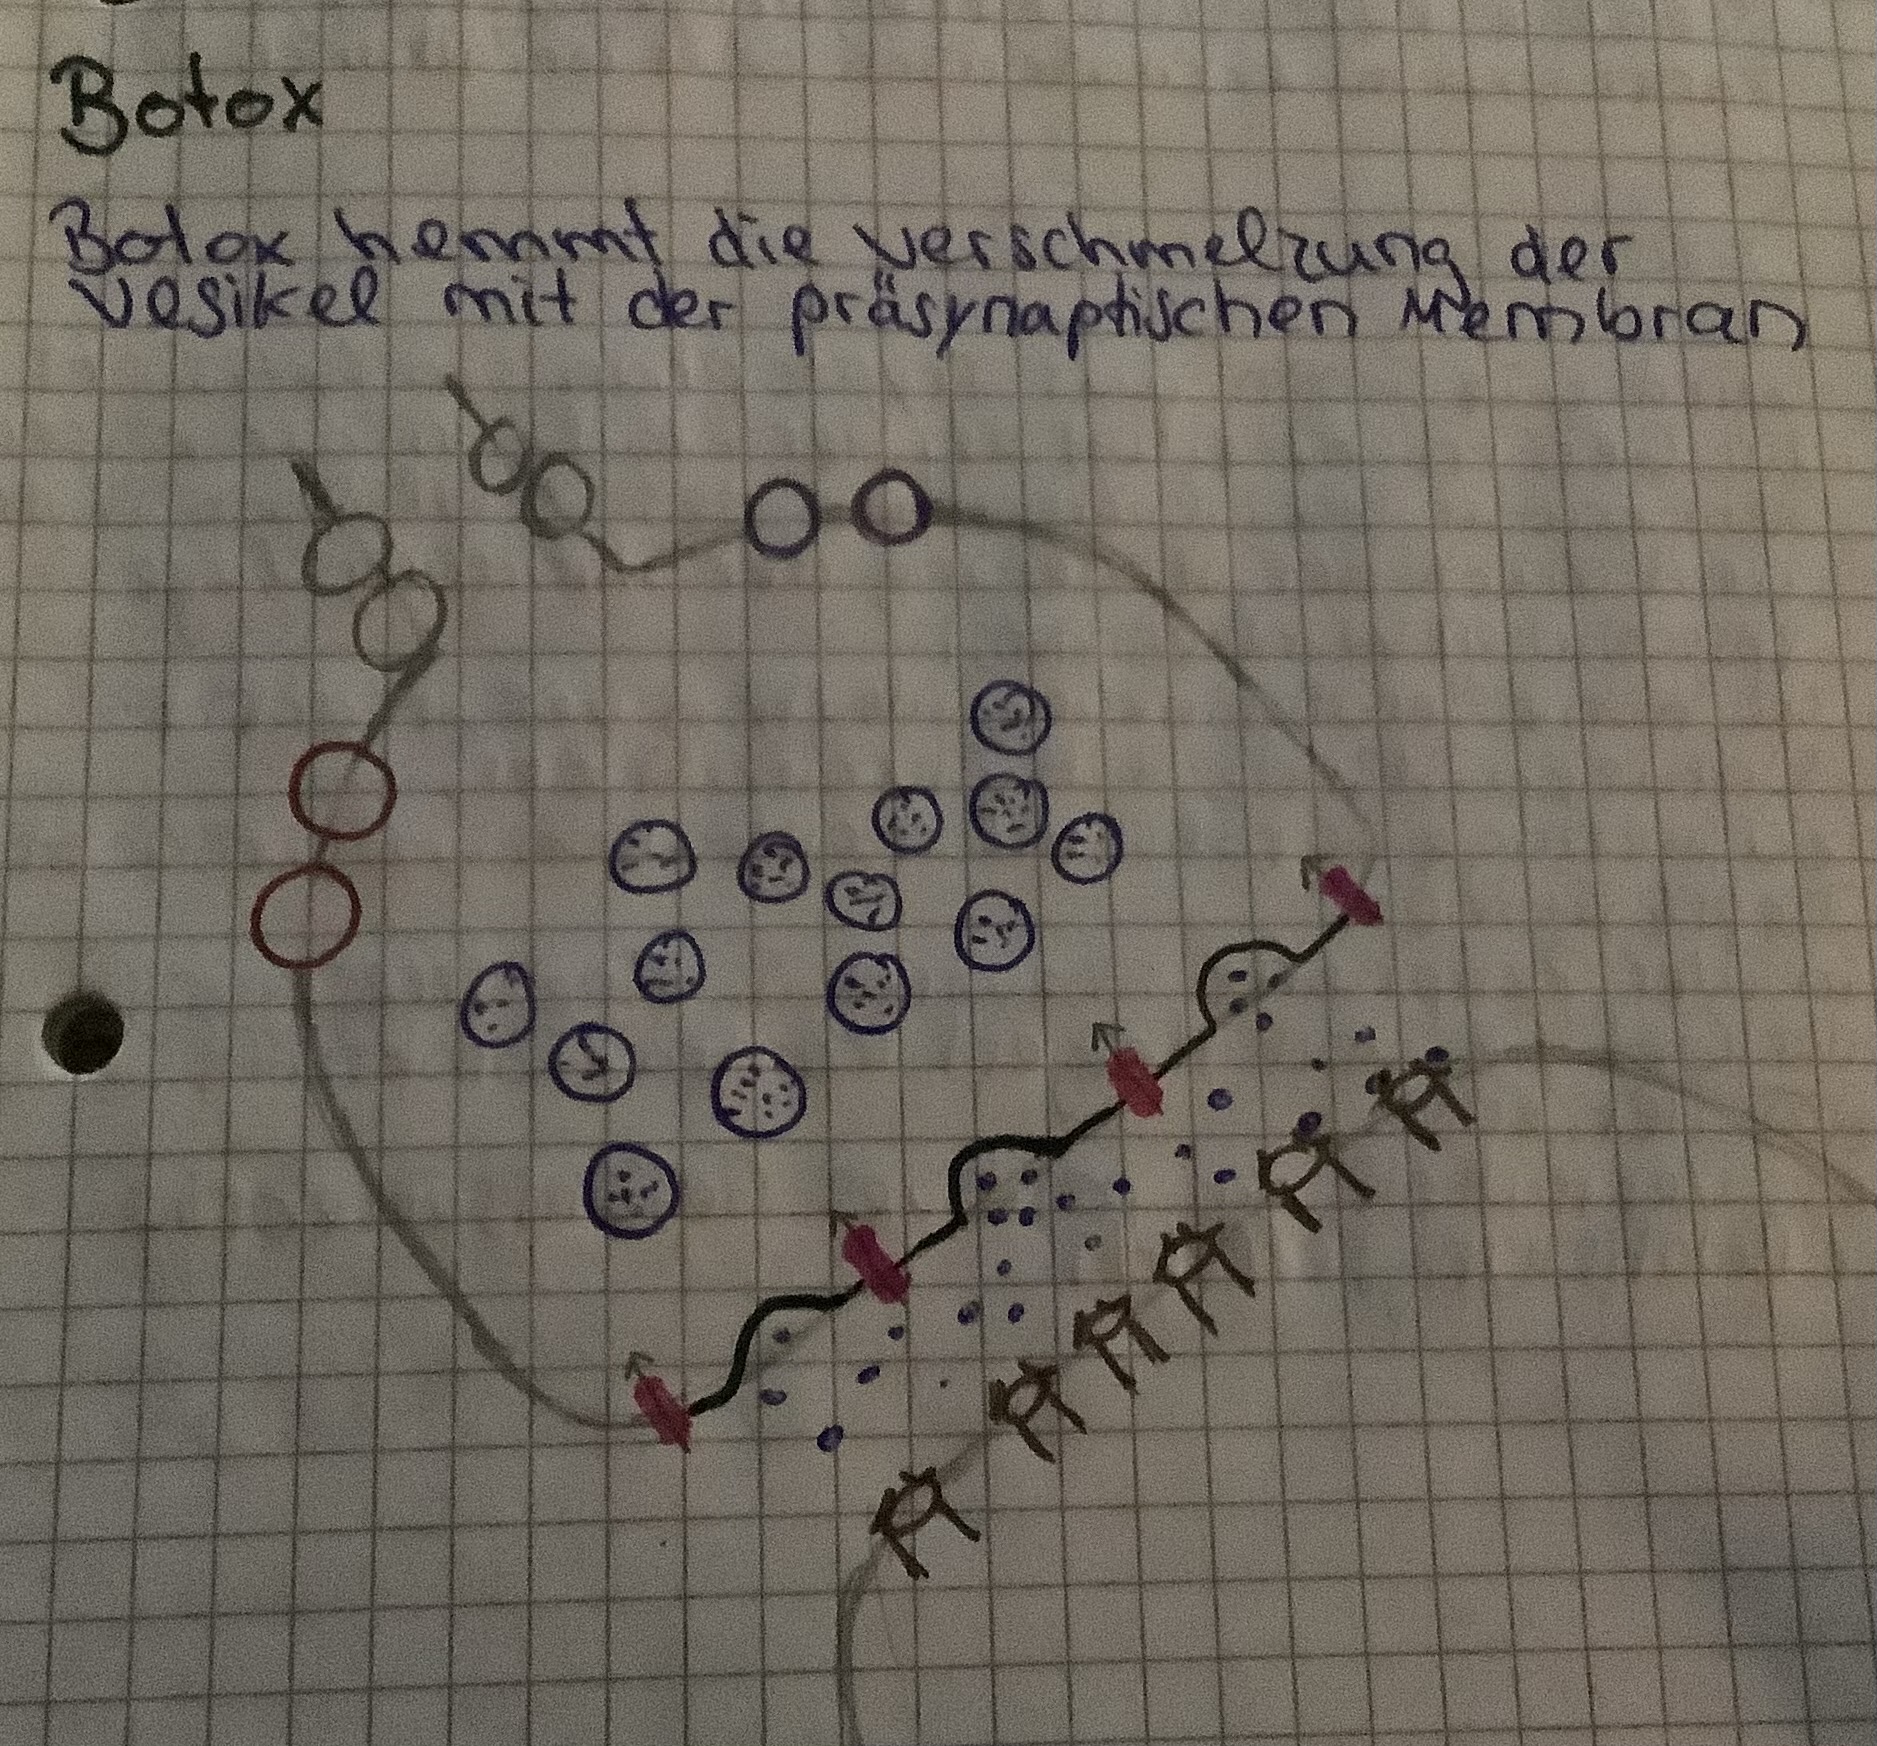 Botox
Botox hemmt die verschmelzung der
vesikel mit der präsynaptischen Membran